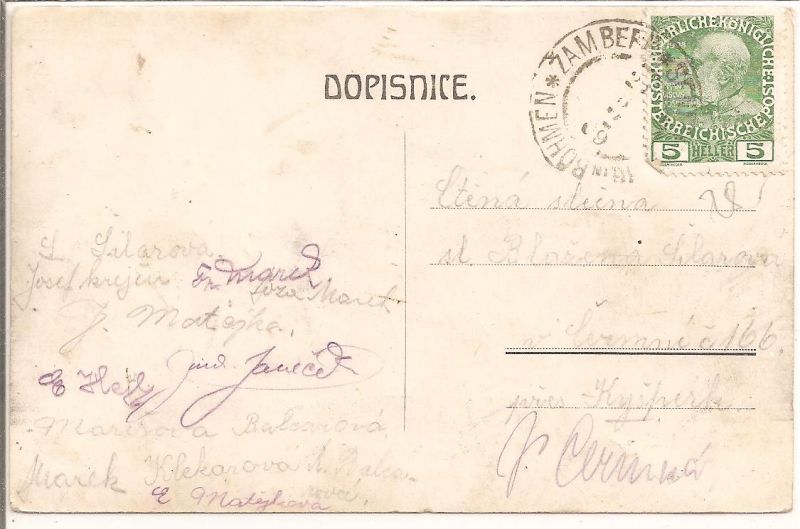 DOPISNICE.
* ŽAMBERK * IN BÖHMEN
09
KAISERLICHE KÖNIGLICHE ÖSTERREICHISCHE POST
5 HELLER 5
Ctěná slečna
sl Blažena Šilarová
v Čermné č 166.
přes Kyšperk
P Čermná
Šilarová
Josef Krejčí Fr. Marek
Marek
J. Matějka.
Jind. Janeček
Marešova Balcarová
Marek Klekarová A. Balca-
rová.
E Matějková